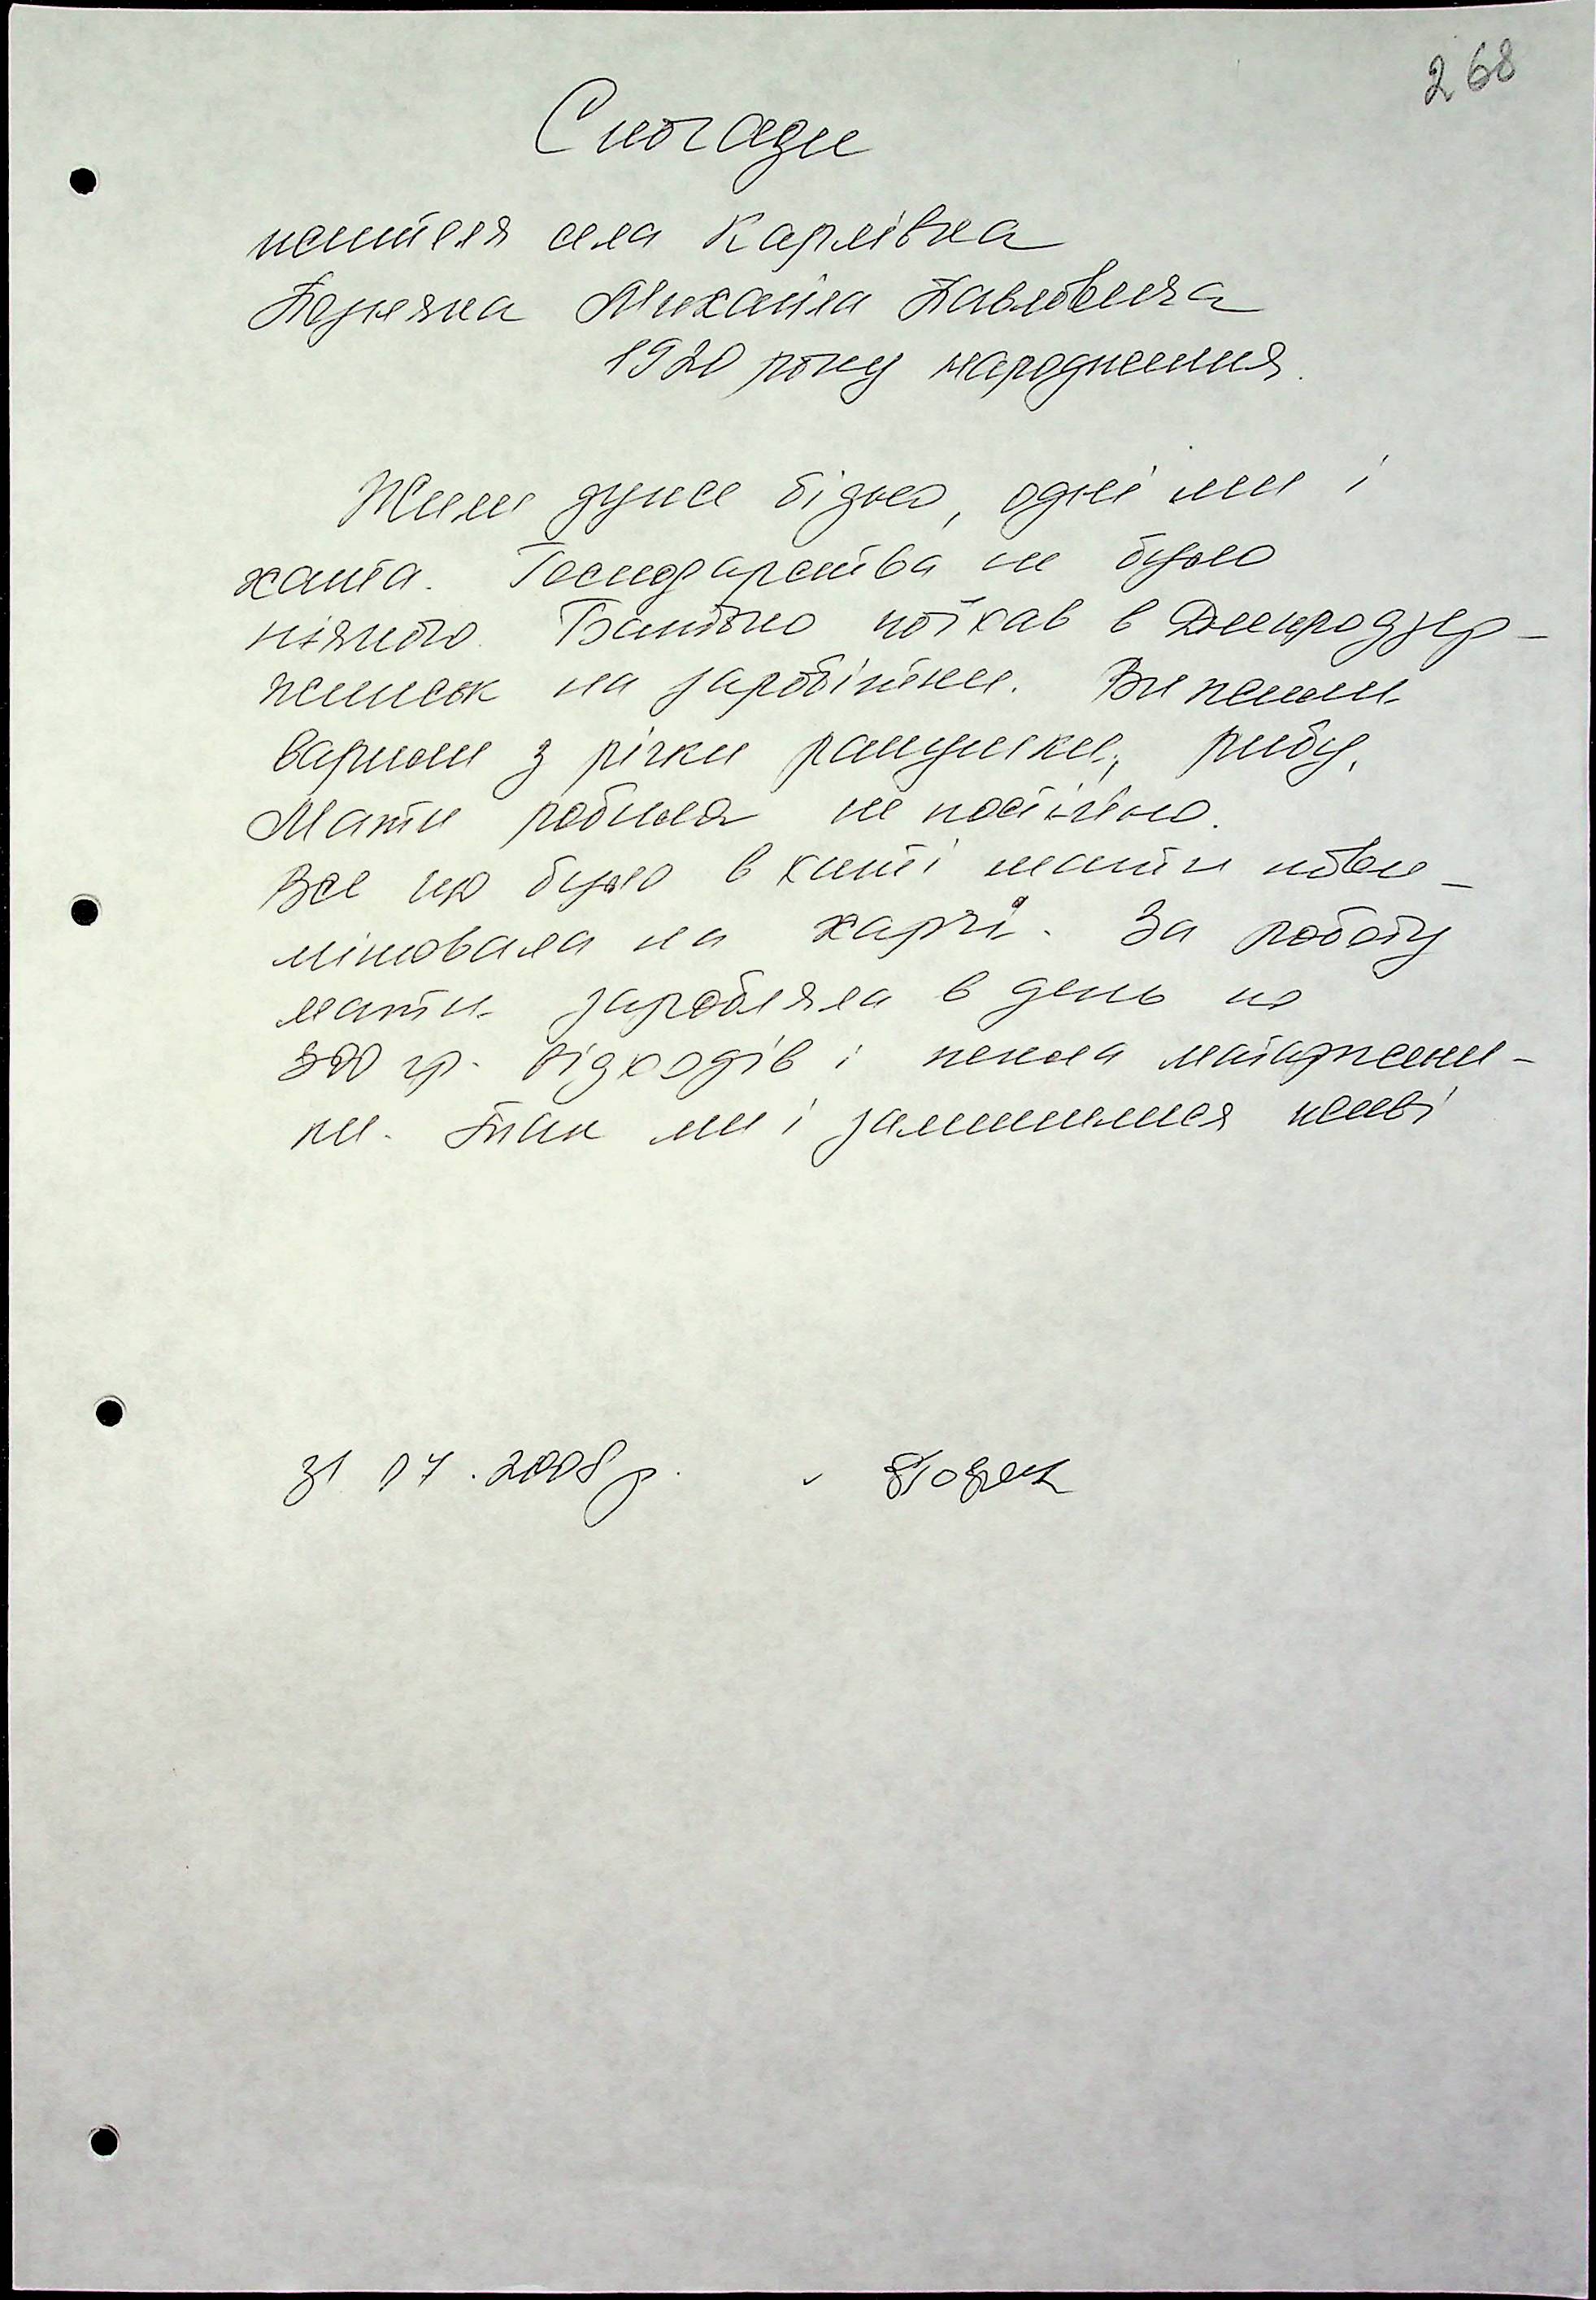 268
Спогади
жителя села Карлівка
Михайла Павловича
1920 року народження.
Жили дуже бідно, одні ми і
хата. Господарства не було
ніякого. Батько поїхав в Днепродзер-
жинськ на заробітки. Вижили
варили з річки ракушки, рибу.
Мати робила не постійно.
Все що було в хаті мати повы-
міновала на харчі. За роботу
мати заробляла в день по
300 гр. відходів і пекла маторжени-
ки. Так ми і залишилися живі
31 07.2008 р.